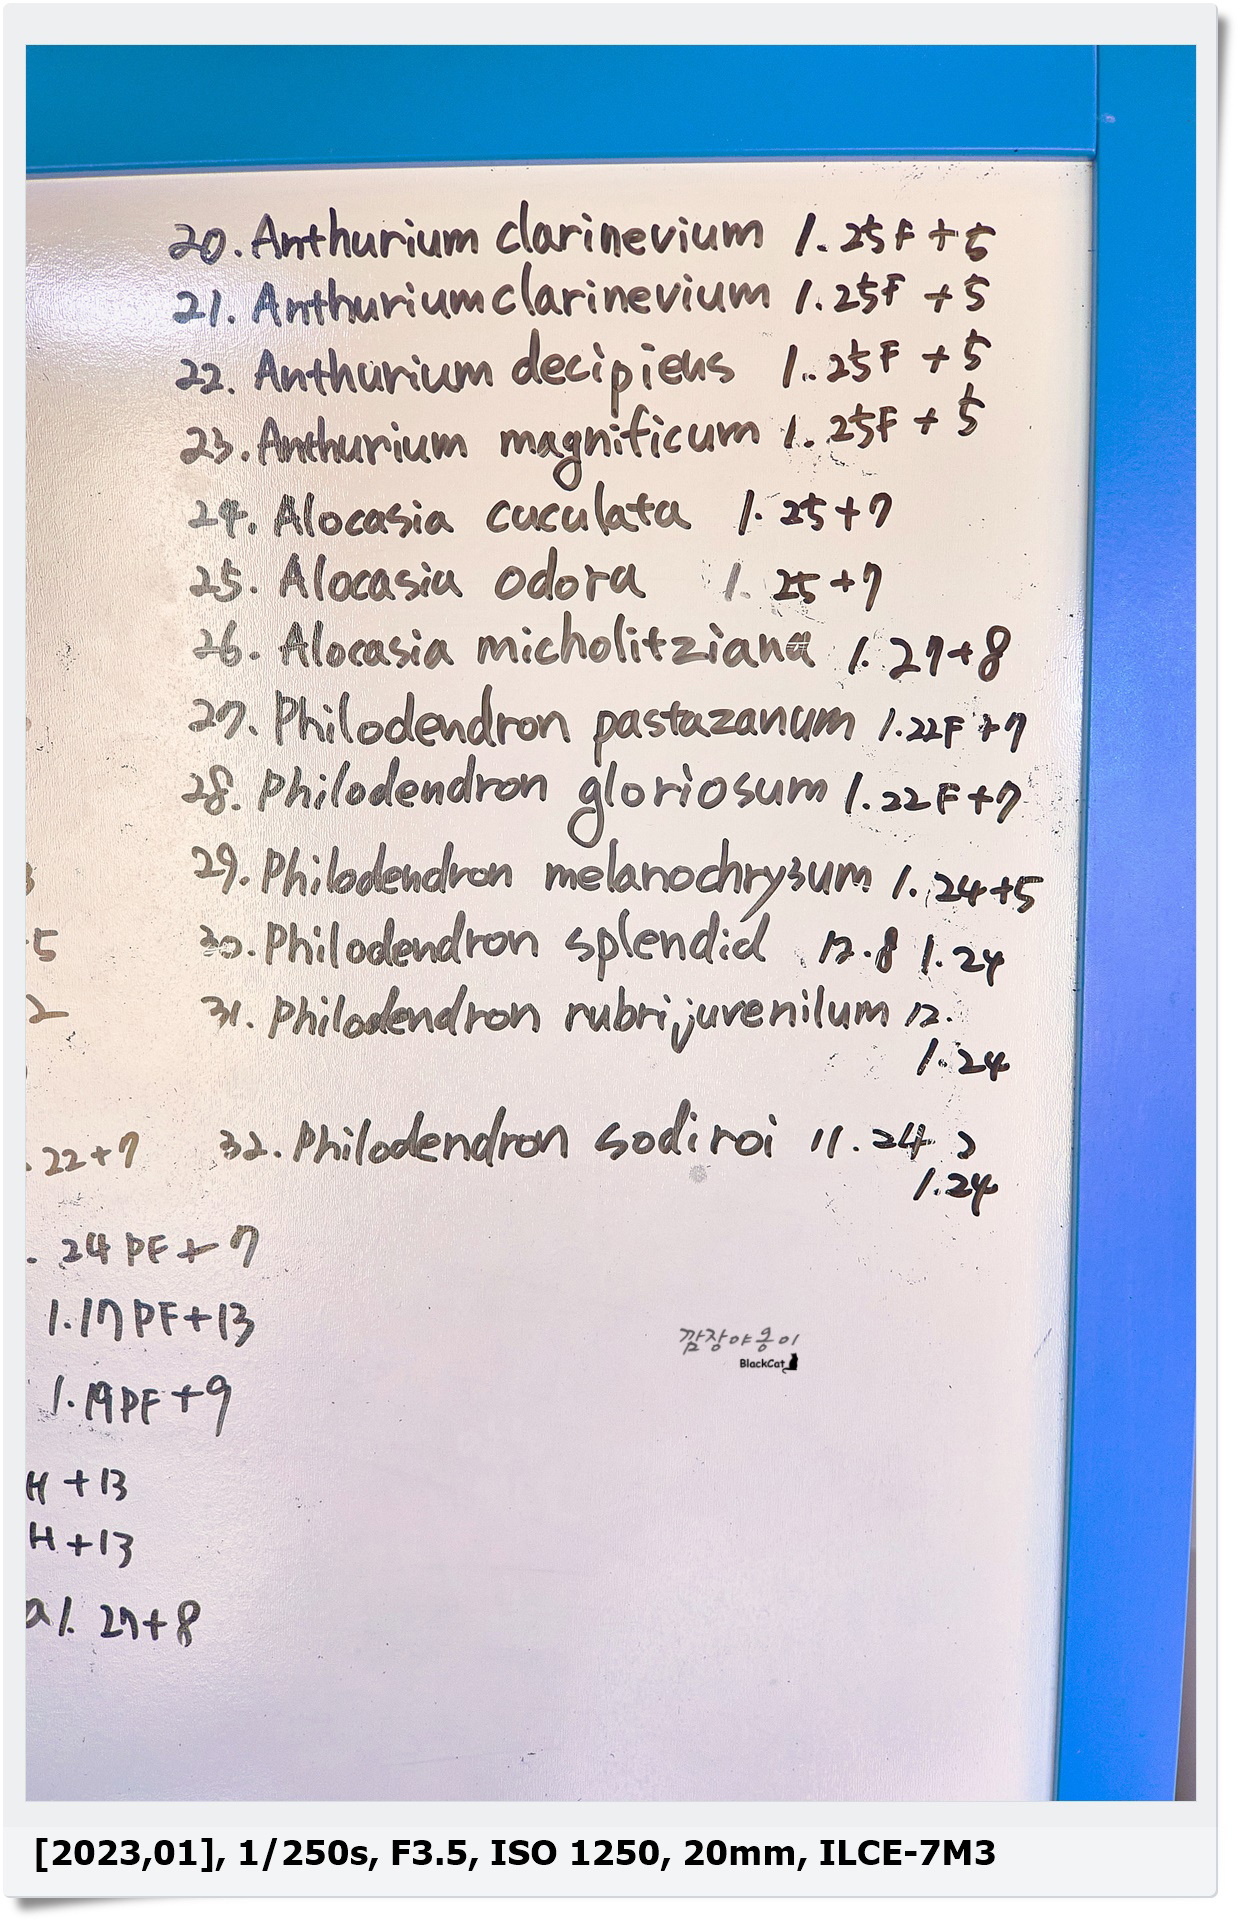 20. Anthurium clarinevium 1. 25F + 5
21. Anthurium clarinevium 1. 25F + 5
22. Anthurium decipiens 1. 25F + 5
23. Anthurium magnificum 1. 25F + 5
24. Alocasia cuculata 1. 25+7
25. Alocasia odora 1. 25+7
26. Alocasia micholitziana 1. 27+8
27. Philodendron pastazanum 1.22F +7
28. Philodendron gloriosum 1.22F+7
29. Philodendron melanochrysum 1. 24+5
30. Philodendron splendid 12.8 1.24
31. Philodendron rubrijuvenilum 12.
1.24
32. Philodendron sodiroi 11.24
1.24
5
2
. 22+7
. 24 PF + 7
1.17 PF+13
1.19PF+9
H +13
H +13
a 1. 27+8
깜장야옹이
BlackCat
[2023,01], 1/250s, F3.5, ISO 1250, 20mm, ILCE-7M3